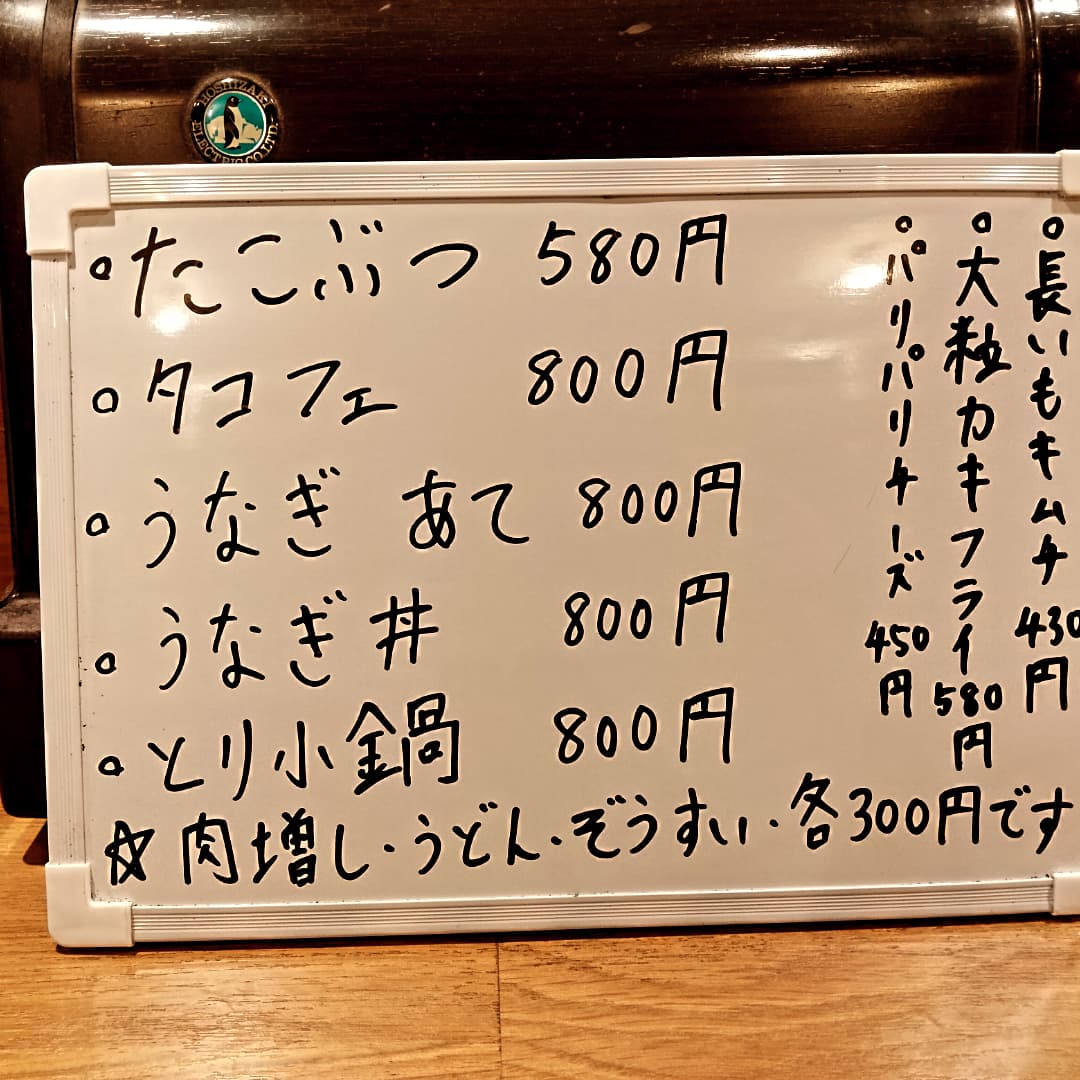 HOSHIZAKI
ELECTRIC CO.,LTD.
°たこぶつ 580円
°タコフェ 800円
°うなぎ あて 800円
°うなぎ丼 800円
°とり小鍋 800円
☆肉増し・うどん・ぞうすい・各300円です
°長いもキムチ430円
°大粒カキフライ580円
°パリパリチーズ450円